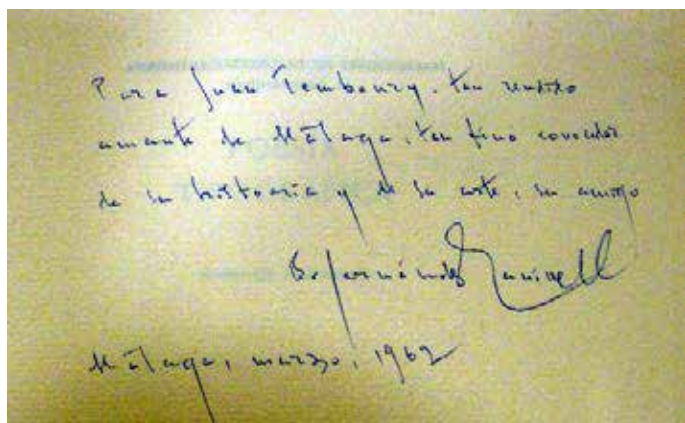 Para Juan Temboury, tan rendido
amante de Málaga, tan fino conocedor
de su historia y de su arte, su amigo
B. Fernández Canivell
Málaga, marzo, 1962